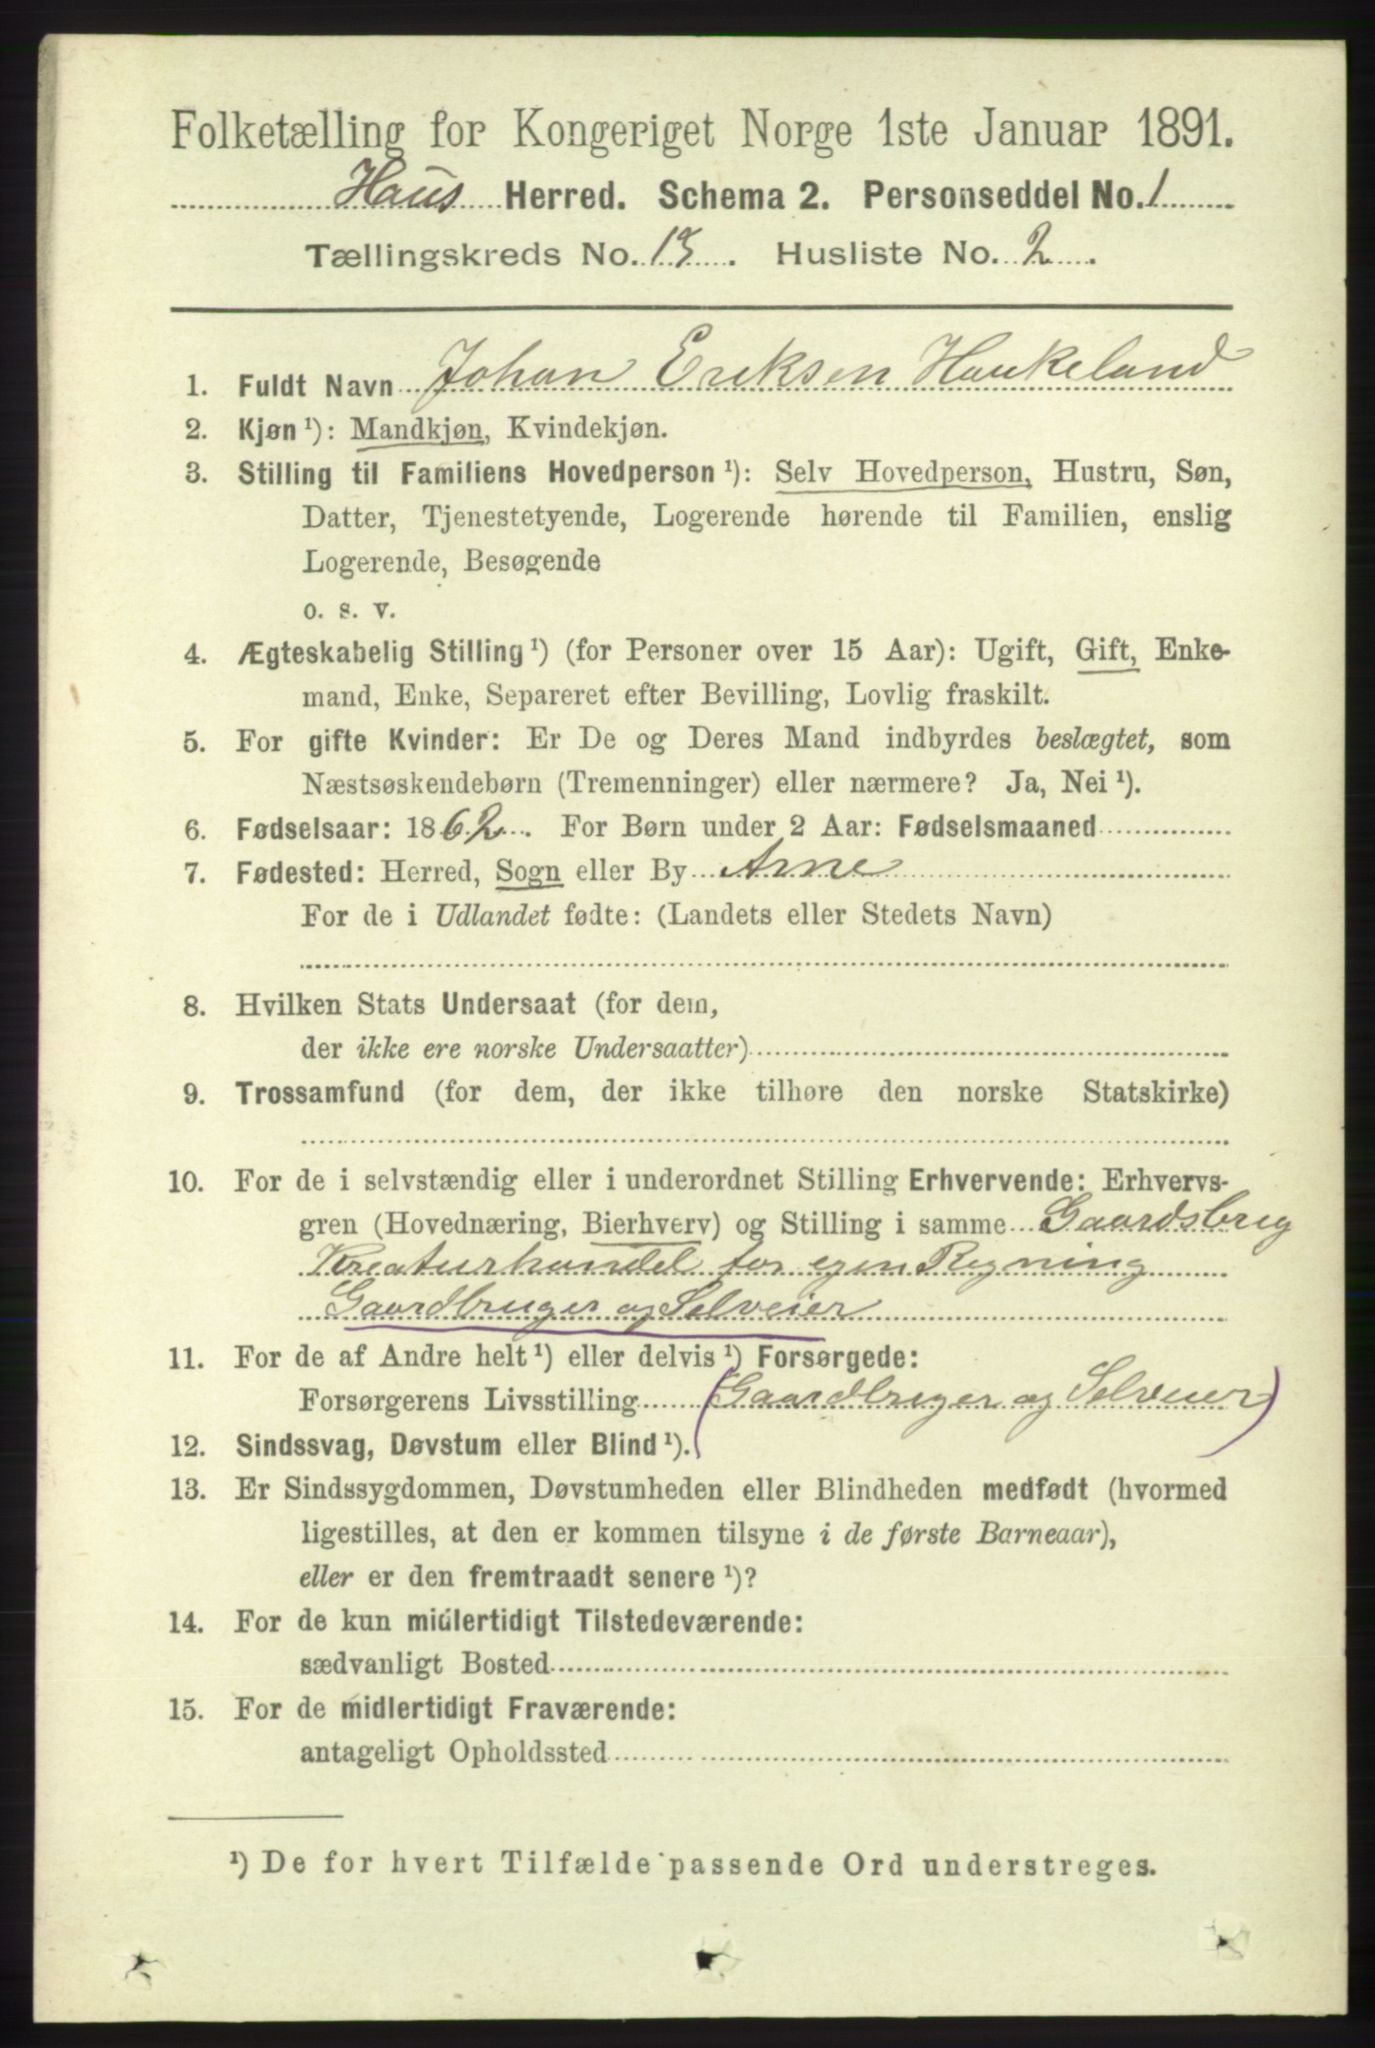 Folketælling for Kongeriget Norge 1ste Januar 1891.
Haus Herred. Schema 2. Personseddel No. 1
Tællingskreds No. 13. Husliste No. 2.
1. Fuldt Navn Johan Eriksen Haukeland
2. Kjøn ¹): Mandkjøn, Kvindekjøn.
3. Stilling til Familiens Hovedperson ¹): Selv Hovedperson, Hustru, Søn,
Datter, Tjenestetyende, Logerende hørende til Familien, enslig
Logerende, Besøgende
o. s. v.
4. Ægteskabelig Stilling ¹) (for Personer over 15 Aar): Ugift, Gift, Enke-
mand, Enke, Separeret efter Bevilling, Lovlig fraskilt.
5. For gifte Kvinder: Er De og Deres Mand indbyrdes beslægtet, som
Næstsøskendebørn (Tremenninger) eller nærmere? Ja, Nei ¹).
6. Fødselsaar: 1862. For Børn under 2 Aar: Fødselsmaaned
7. Fødested: Herred, Sogn eller By Arne
For de i Udlandet fødte: (Landets eller Stedets Navn)
8. Hvilken Stats Undersaat (for dem,
der ikke ere norske Undersaatter)
9. Trossamfund (for dem, der ikke tilhøre den norske Statskirke)
10. For de i selvstændig eller i underordnet Stilling Erhvervende: Erhvervs-
gren (Hovednæring, Bierhverv) og Stilling i samme Gaardsbrug
Kreaturhandel for egen Regning
Gaardbruger og Selveier
11. For de af Andre helt ¹) eller delvis ¹) Forsørgede:
Forsørgerens Livsstilling (Gaardbruger og Selveier)
12. Sindssvag, Døvstum eller Blind ¹).
13. Er Sindssygdommen, Døvstumheden eller Blindheden medfødt (hvormed
ligestilles, at den er kommen tilsyne i de første Barneaar),
eller er den fremtraadt senere ¹)?
14. For de kun midlertidigt Tilstedeværende:
sædvanligt Bosted
15. For de midlertidigt Fraværende:
antageligt Opholdssted
¹) De for hvert Tilfælde passende Ord understreges.